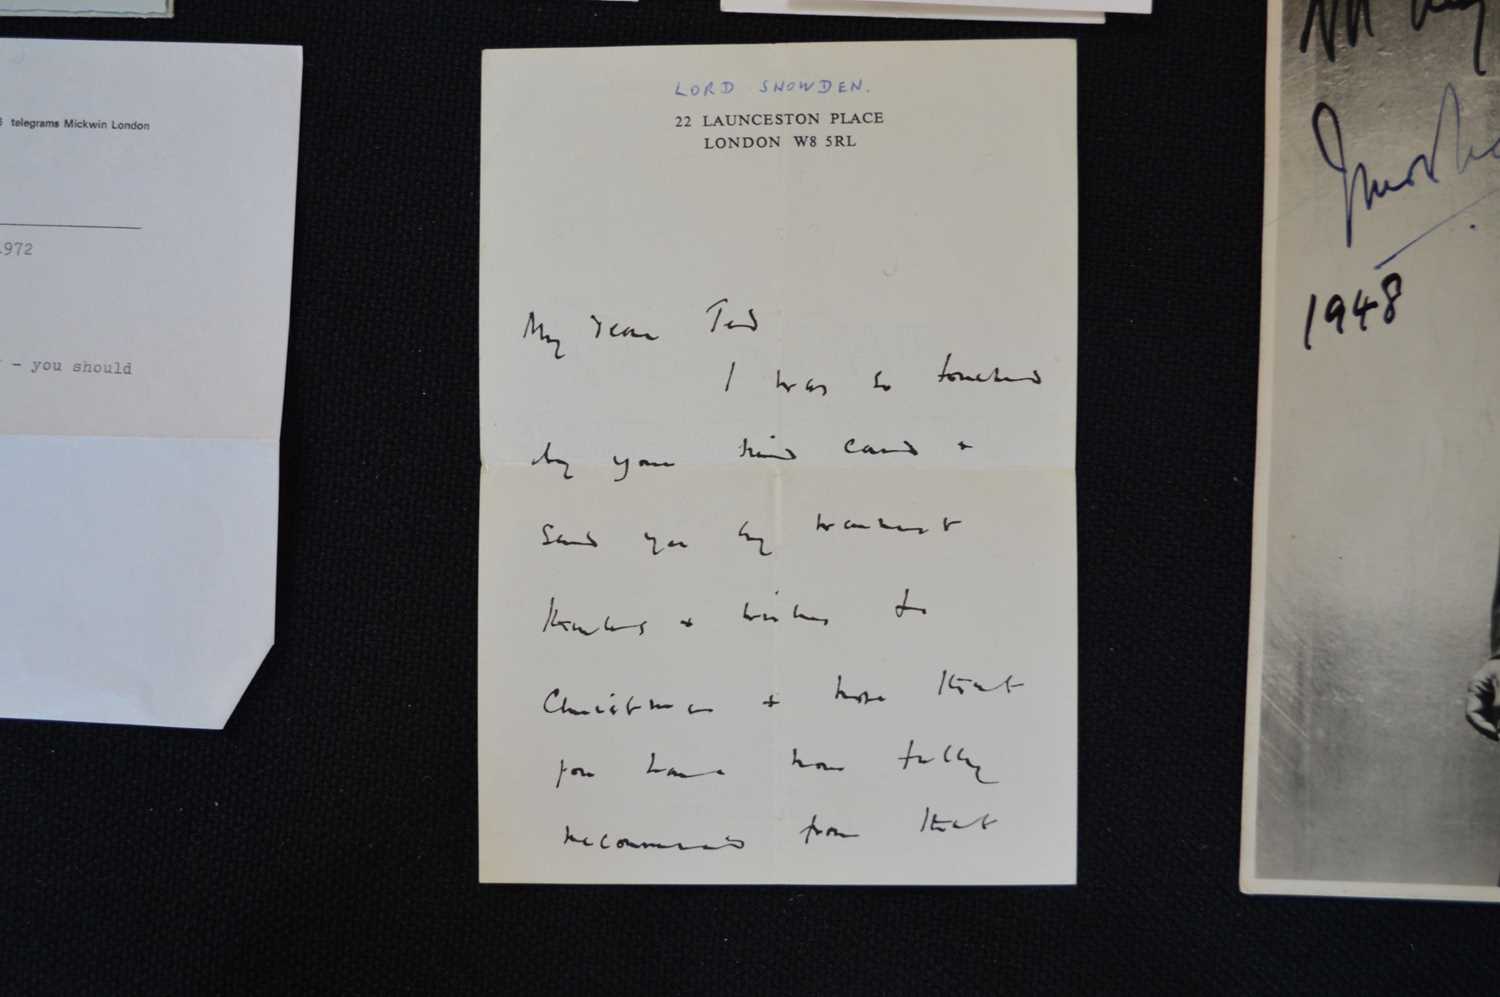 telegrams Mickwin London
1972
- you should
LORD SNOWDEN.
22 LAUNCESTON PLACE
LONDON W8 5RL
My dear Ted
I was so touched
by your kind card +
send you my warmest
thanks + wishes for
Christmas + hope that
you have now fully
recovered from that
1948